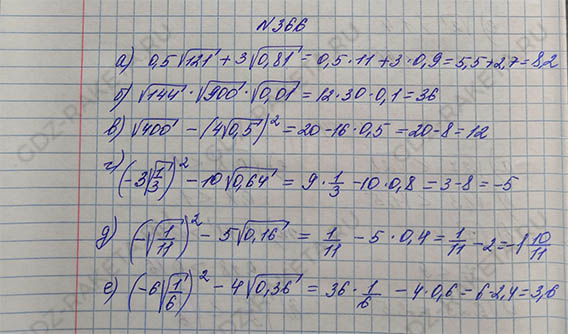 №366
а) 0,5√121 + 3√0,81 = 0,5·11 + 3·0,9 = 5,5 + 2,7 = 8,2
б) √144 · √900 · √0,01 = 12·30·0,1 = 36
в) √400 - (4√0,5)² = 20 - 16·0,5 = 20 - 8 = 12
г) (-3√1/3)² - 10√0,64 = 9·1/3 - 10·0,8 = 3 - 8 = -5
д) (-√1/11)² - 5√0,16 = 1/11 - 5·0,4 = 1/11 - 2 = -1 10/11
е) (-6√1/6)² - 4√0,36 = 36·1/6 - 4·0,6 = 6 - 2,4 = 3,6